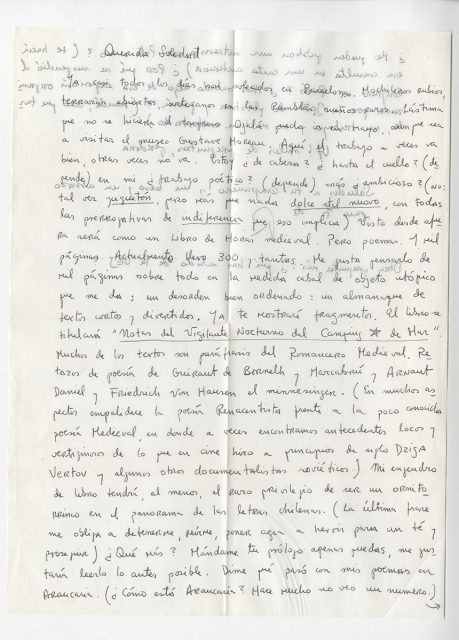 Querida Soledad:
Ya casi todos los días son soleados en Barcelona. Mochileros rubios,
terrazas abiertas, artesanos en las Ramblas, sueños raros. Lástima
que no se hiciera el Ojalá pueda ir en mayo, aunque sea
a visitar el museo Gustave Moreau. Aquí el trabajo a veces va
bien, otras veces no va. Estoy ¿de cabeza? ¿hasta el cuello? (de-
pende) en mi ¿trabajo poético? (depende) más ¿ambicioso? (no:
tal vez juguetón, pero más que nada dolce stil nuovo, con todas
las prerrogativas de indiferencia que eso implica) Visto desde afue-
ra sería como un Libro de Horas medieval. Pero poemas. Y mil
páginas. Actualmente llevo 300 y tantas. Me gusta pensarlo de
mil páginas sobre todo en la medida cabal de objeto utópico
que me da: un desorden bien ordenado: un almanaque de
textos cortos y divertidos. Ya te mostraré fragmentos. El libro se
titulará "Notas del Vigilante Nocturno del Camping de Mar"
Muchos de los textos son paráfrasis del Romancero Medieval. Re-
tazos de poesía de Guiraut de Bornelh y Marcabrú y Arnaut
Daniel y Friedrich von Hausen el minnesinger. (En muchos as-
pectos empalidece la poesía Renacentista frente a la poco conocida
poesía Medieval en donde a veces encontramos antecedentes locos y
vertiginosos de lo que en cine hizo a principios de siglo Dziga
Vertov y algunos otros documentalistas soviéticos.) Mi engendro
de libro tendrá, al menos, el raro privilegio de ser un ornito-
rrinco en el panorama de las letras chilenas. (La última frase
me obliga a detenerme, reírme, poner agua a hervir para un té y
proseguir) ¿Qué más? Mándame tu prólogo apenas puedas, me gus-
taría leerlo lo antes posible. Dime qué pasó con mis poemas en
Araucaria. (¿Cómo está Araucaria? Hace mucho no veo un número.)